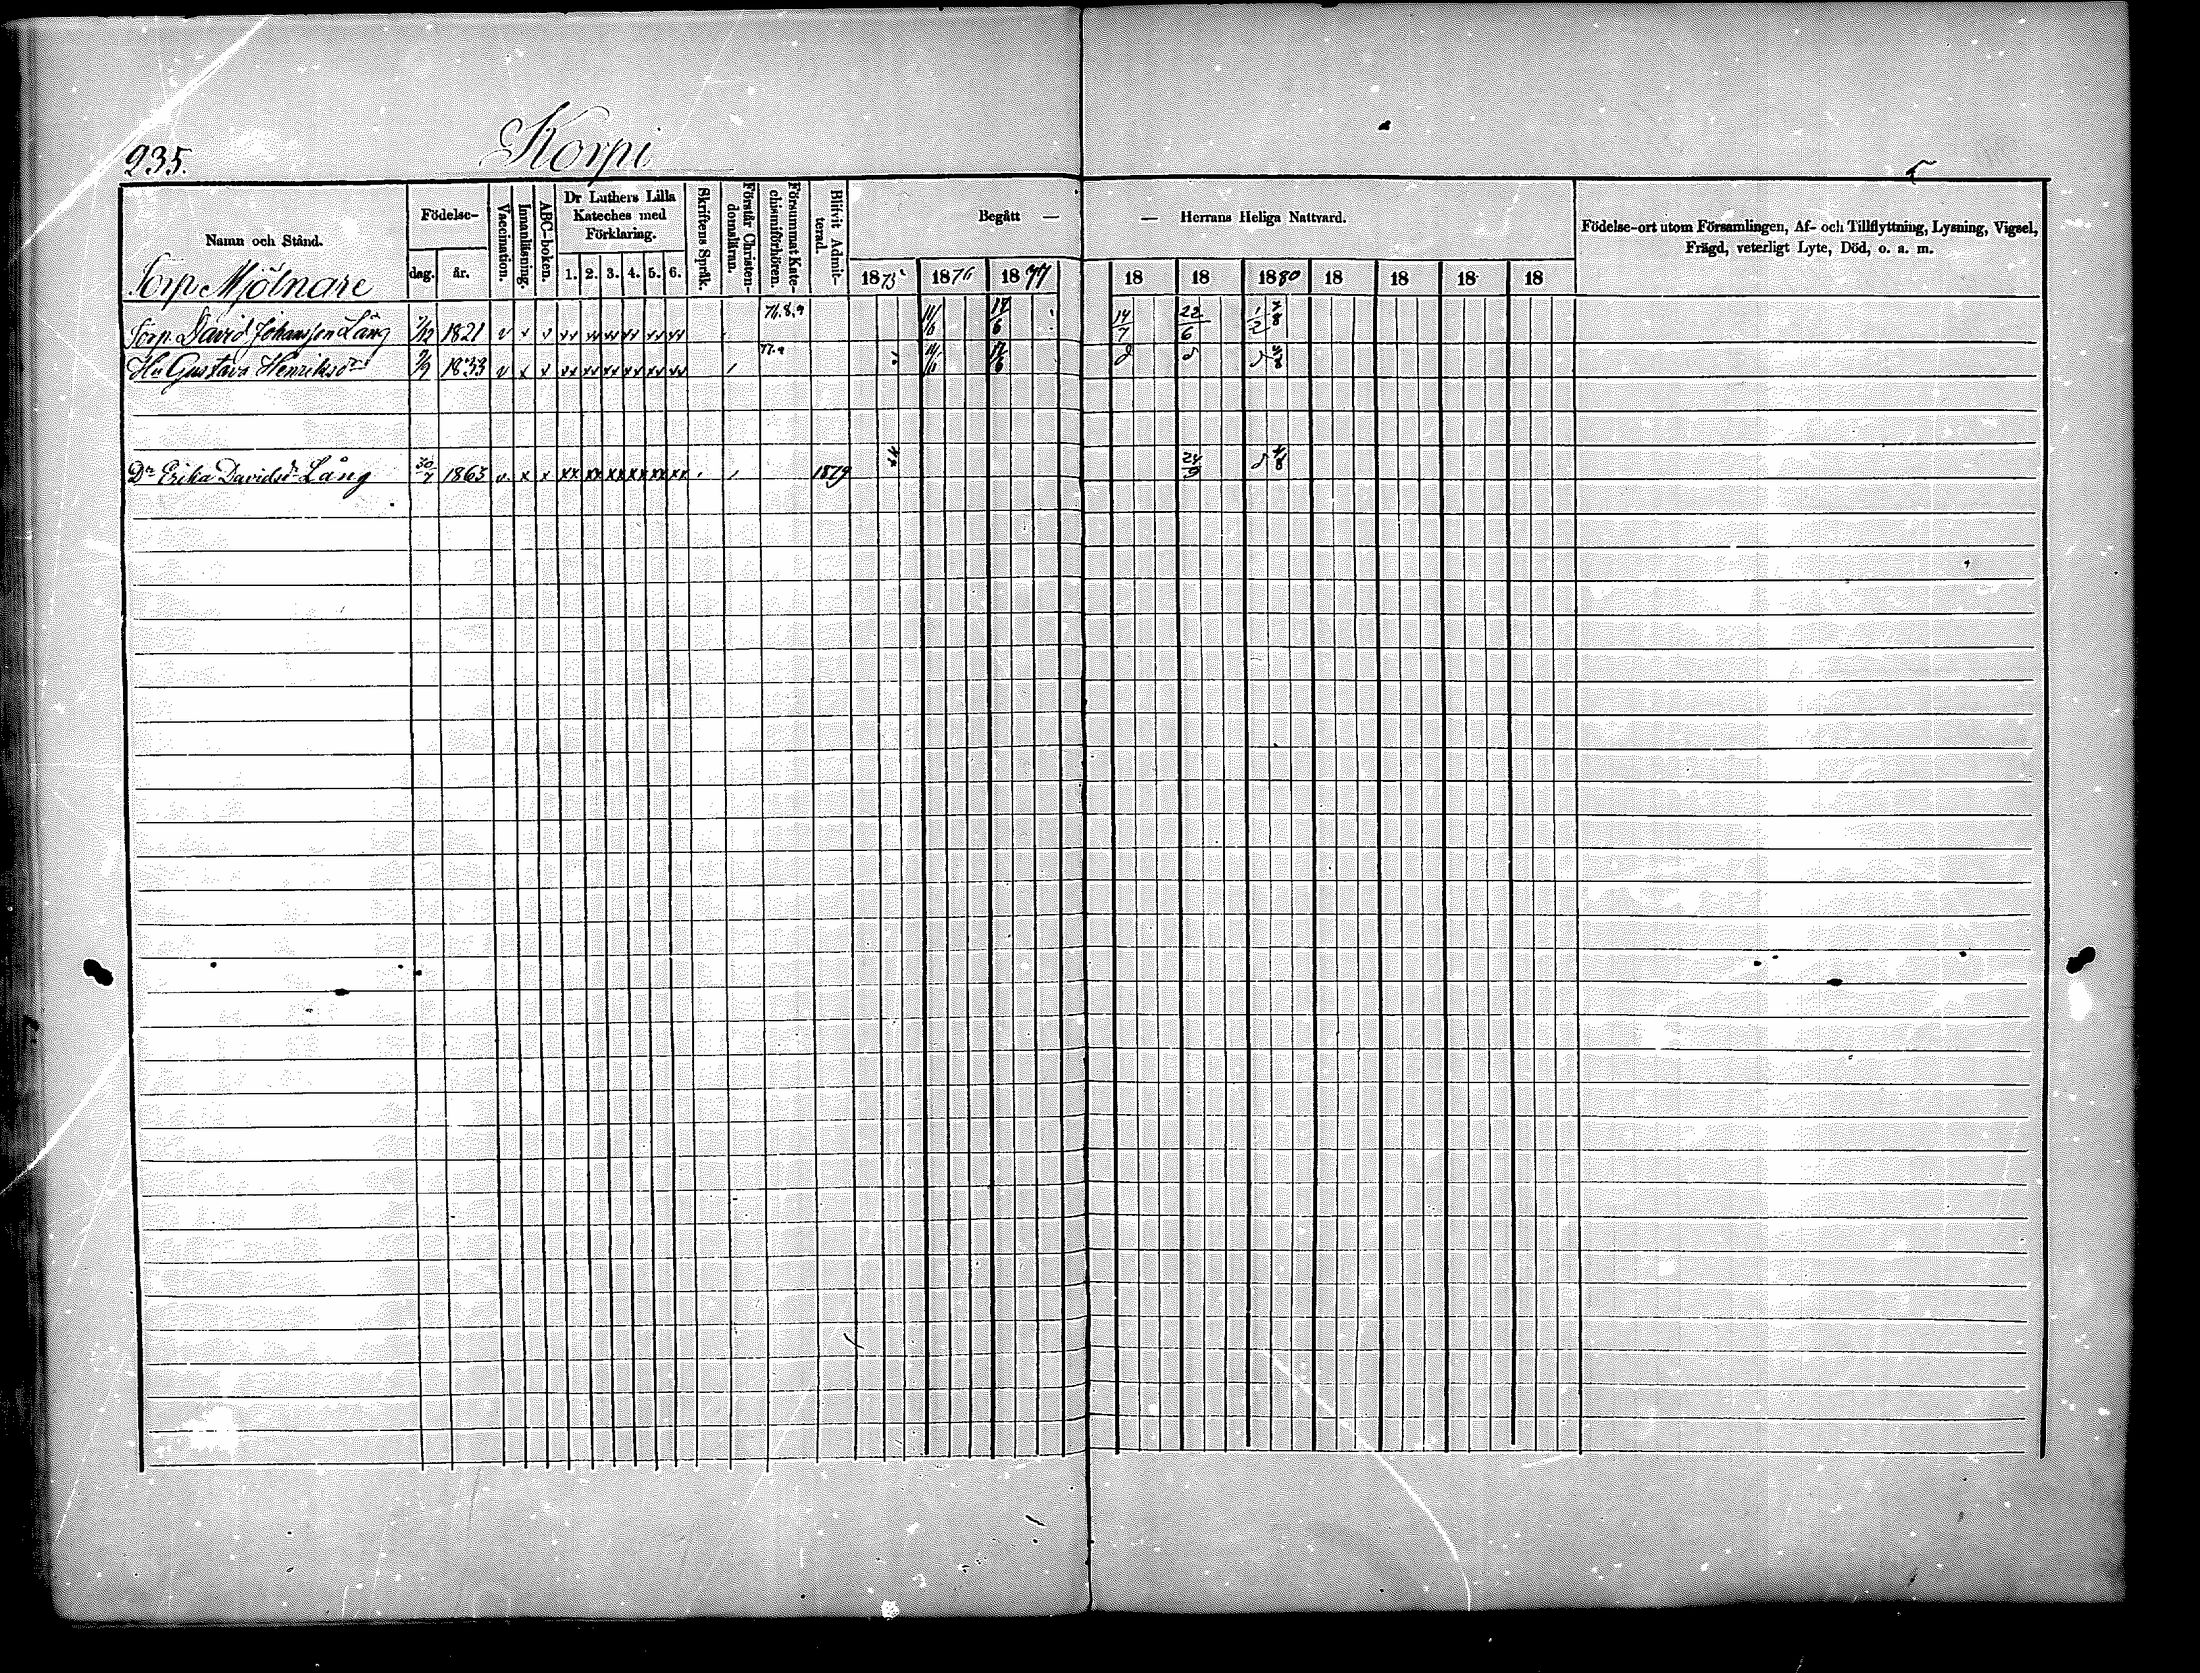 235.
Korpi
Namn och Stånd.
Födelse-
dag.
år.
Vaccination.
Innanläsning.
ABC-boken.
Dr Luthers Lilla Kateches med Förklaring.
1. 2. 3. 4. 5. 6.
Skriftens Språk.
Förstår Christendomsläran.
Försummat Katechismiförhören.
Blifvit Admitterad.
Begått —
— Herrans Heliga Nattvard.
1875 1876 1877 18 18 1880 18 18 18 18
Födelse-ort utom Församlingen, Af- och Tillflyttning, Lysning, Vigsel,
Frägd, veterligt Lyte, Död, o. a. m.
Torp. Mjölnare
Torp. David Johansson Lång 1821 v x v xx xx xx xx xx xx 76.8.9 17/6 14/7 22/6 1/2
Hu Gustava Henriksdr 1833 v x x xx xx xx xx xx xx 77.9 17/6
Dr Erika Davidsdr Lång 30/7 1863 v. x x xx xx xx xx xx xx 1879 21/9